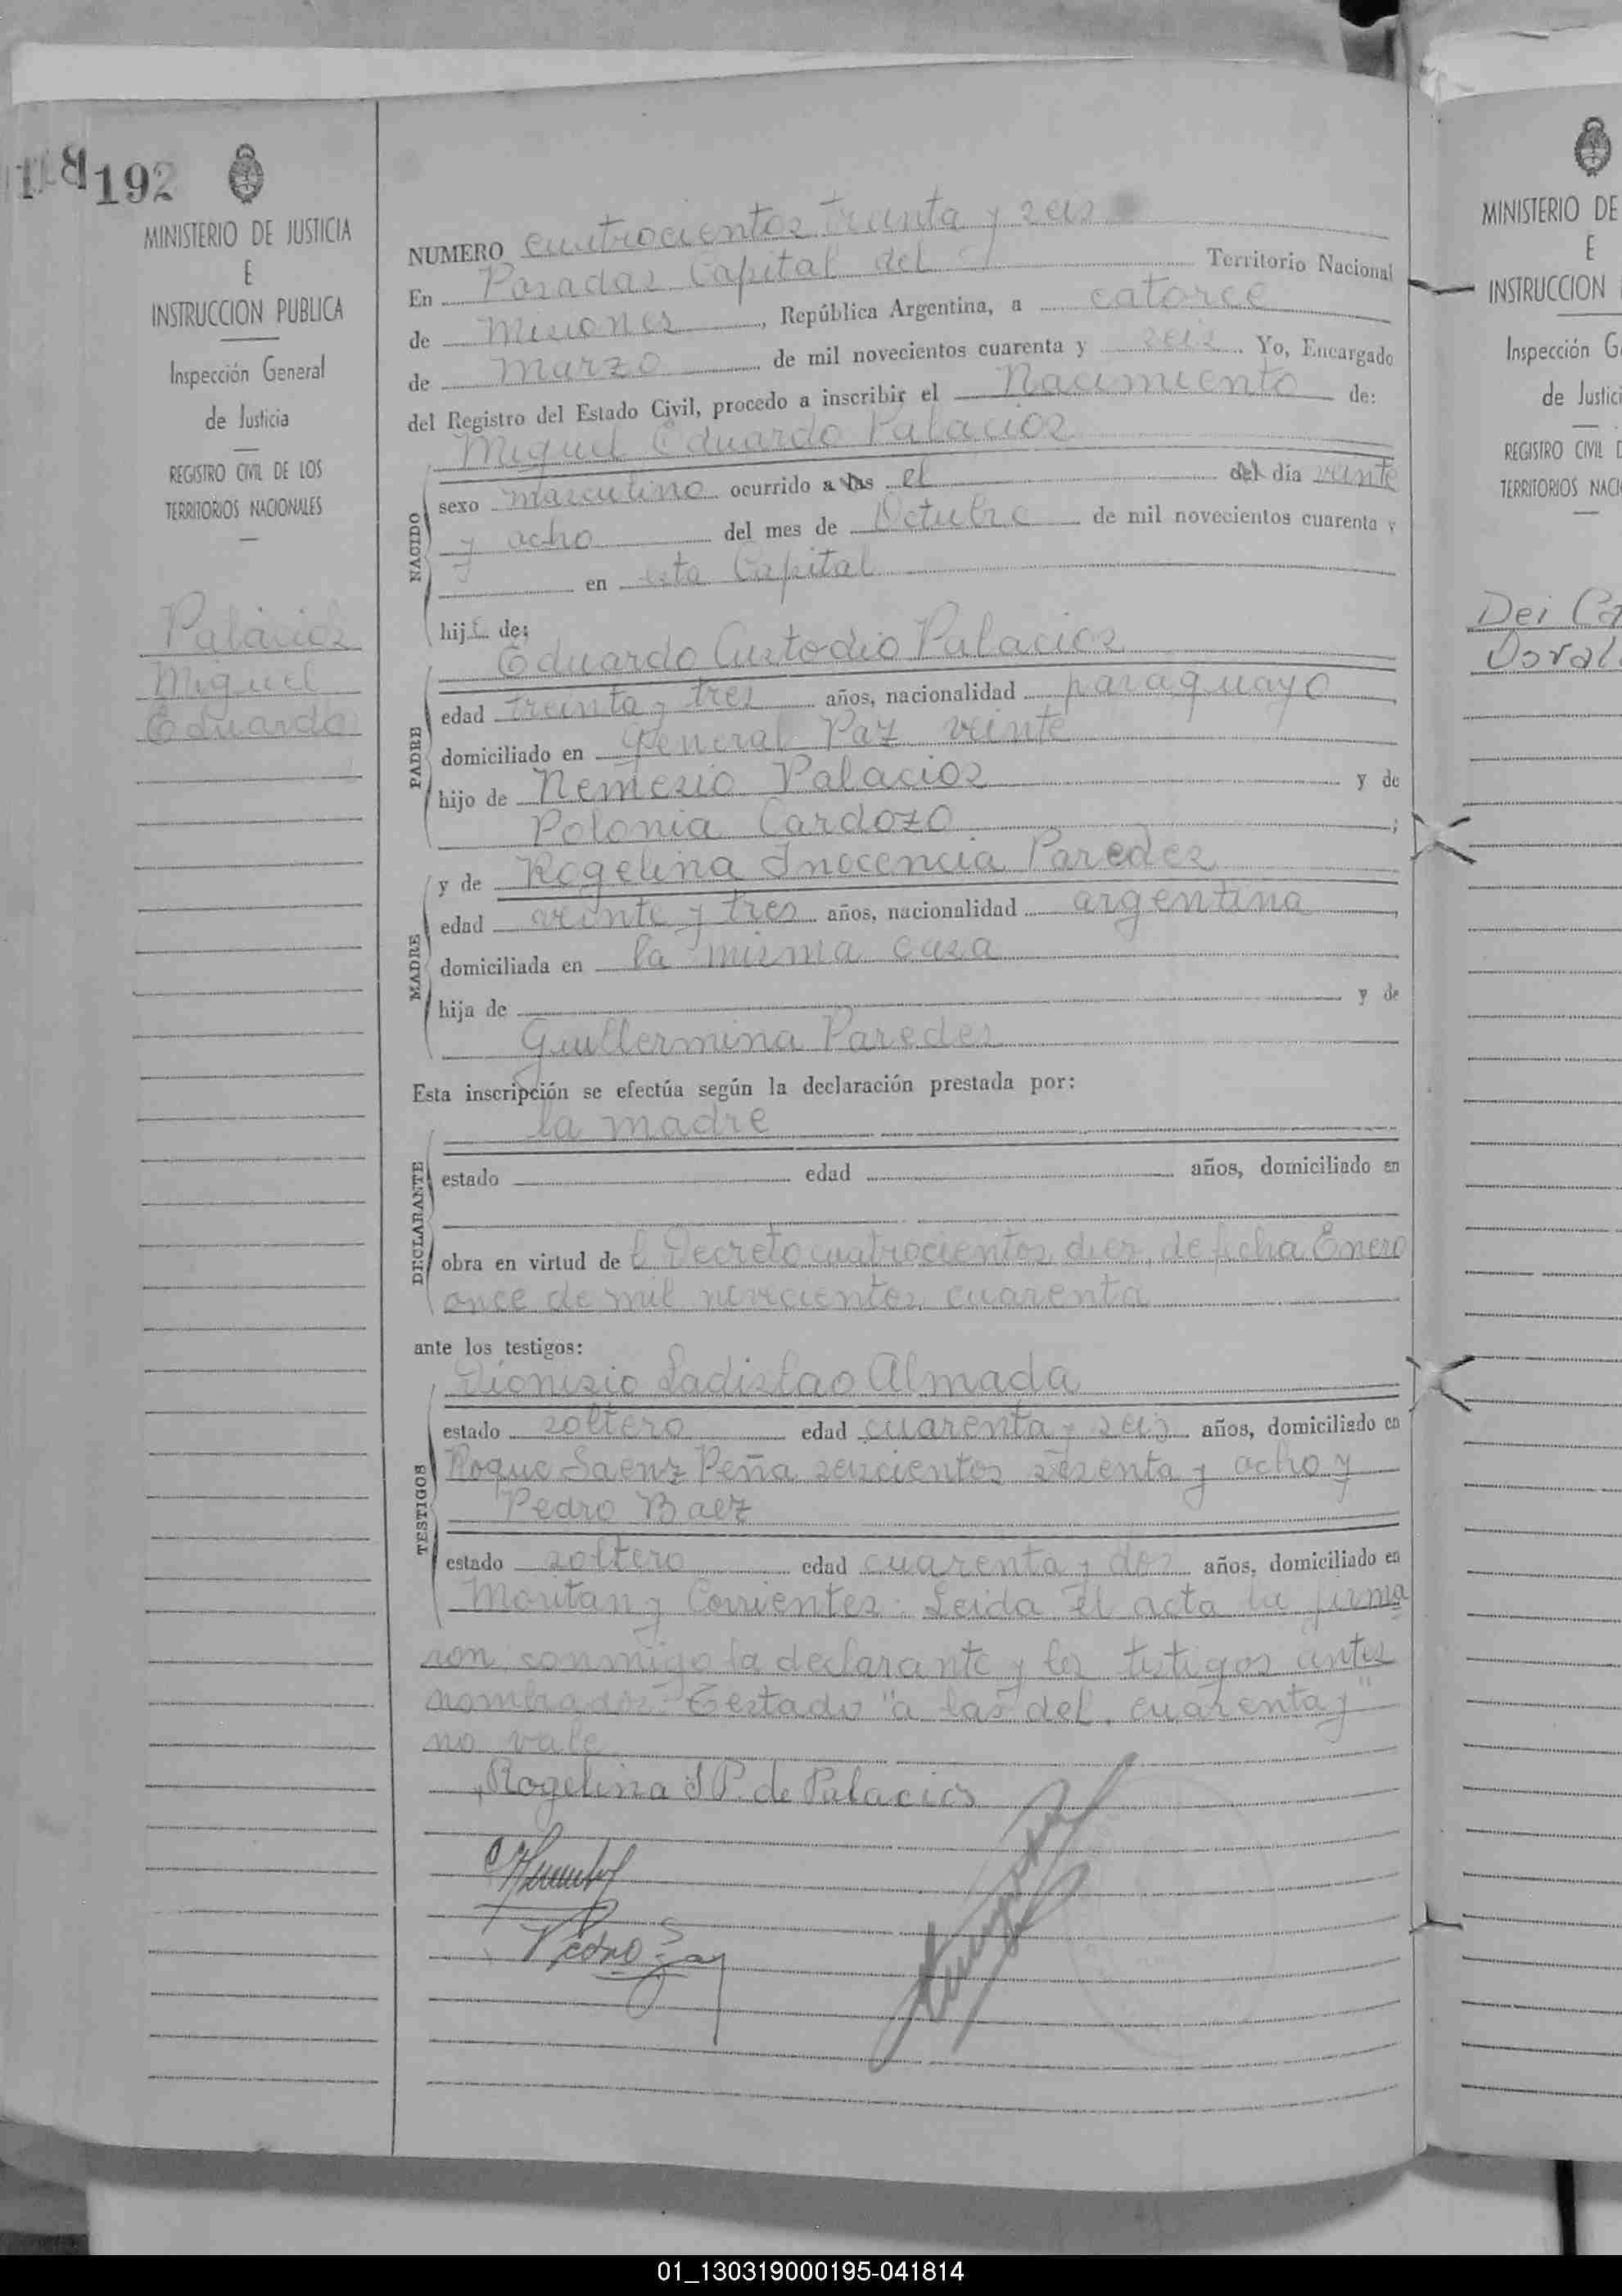 192
MINISTERIO DE JUSTICIA
E
INSTRUCCION PUBLICA
Inspección General
de Justicia
REGISTRO CIVIL DE LOS
TERRITORIOS NACIONALES
Palacios
Miguel
Eduardo
NUMERO cuatrocientos treinta y seis
En Posadas Capital del Territorio Nacional
de Misiones, República Argentina, a catorce
de Marzo de mil novecientos cuarenta y seis. Yo, Encargado
del Registro del Estado Civil, procedo a inscribir el Nacimiento de:
NACIDO
Miguel Eduardo Palacios
sexo masculino ocurrido a las el del día veinte
y ocho del mes de Octubre de mil novecientos cuarenta y
en esta Capital
hijo de:
PADRE
Eduardo Custodio Palacios
edad treinta y tres años, nacionalidad paraguayo
domiciliado en General Paz veinte
hijo de Nemesio Palacios y de
Polonia Cardozo;
MADRE
y de Rogelina Inocencia Paredes
edad veinte y tres años, nacionalidad argentina,
domiciliada en la misma casa
hija de y de
Guillermina Paredes
Esta inscripción se efectúa según la declaración prestada por:
DECLARANTE
la madre
estado edad años, domiciliado en
obra en virtud de l Decreto cuatrocientos diez, de fecha Enero
once de mil novecientos cuarenta
ante los testigos:
TESTIGOS
Dionisio Ladislao Almada
estado soltero edad cuarenta y seis años, domiciliado en
Roque Saenz Peña seiscientos sesenta y ocho y
Pedro Baez
estado soltero edad cuarenta y dos años, domiciliado en
y Corrientes. Leida el acta la firma
ron conmigo la declarante y los testigos antes
nombrados. Testado "a las del, cuarenta y"
no vale
Rogelina I P. de Palacios
Pedro
MINISTERIO DE
E
INSTRUCCION
Inspección G
de Justici
REGISTRO CIVIL D
TERRITORIOS NACI
Dei Ca
Doral
01_130319000195-041814